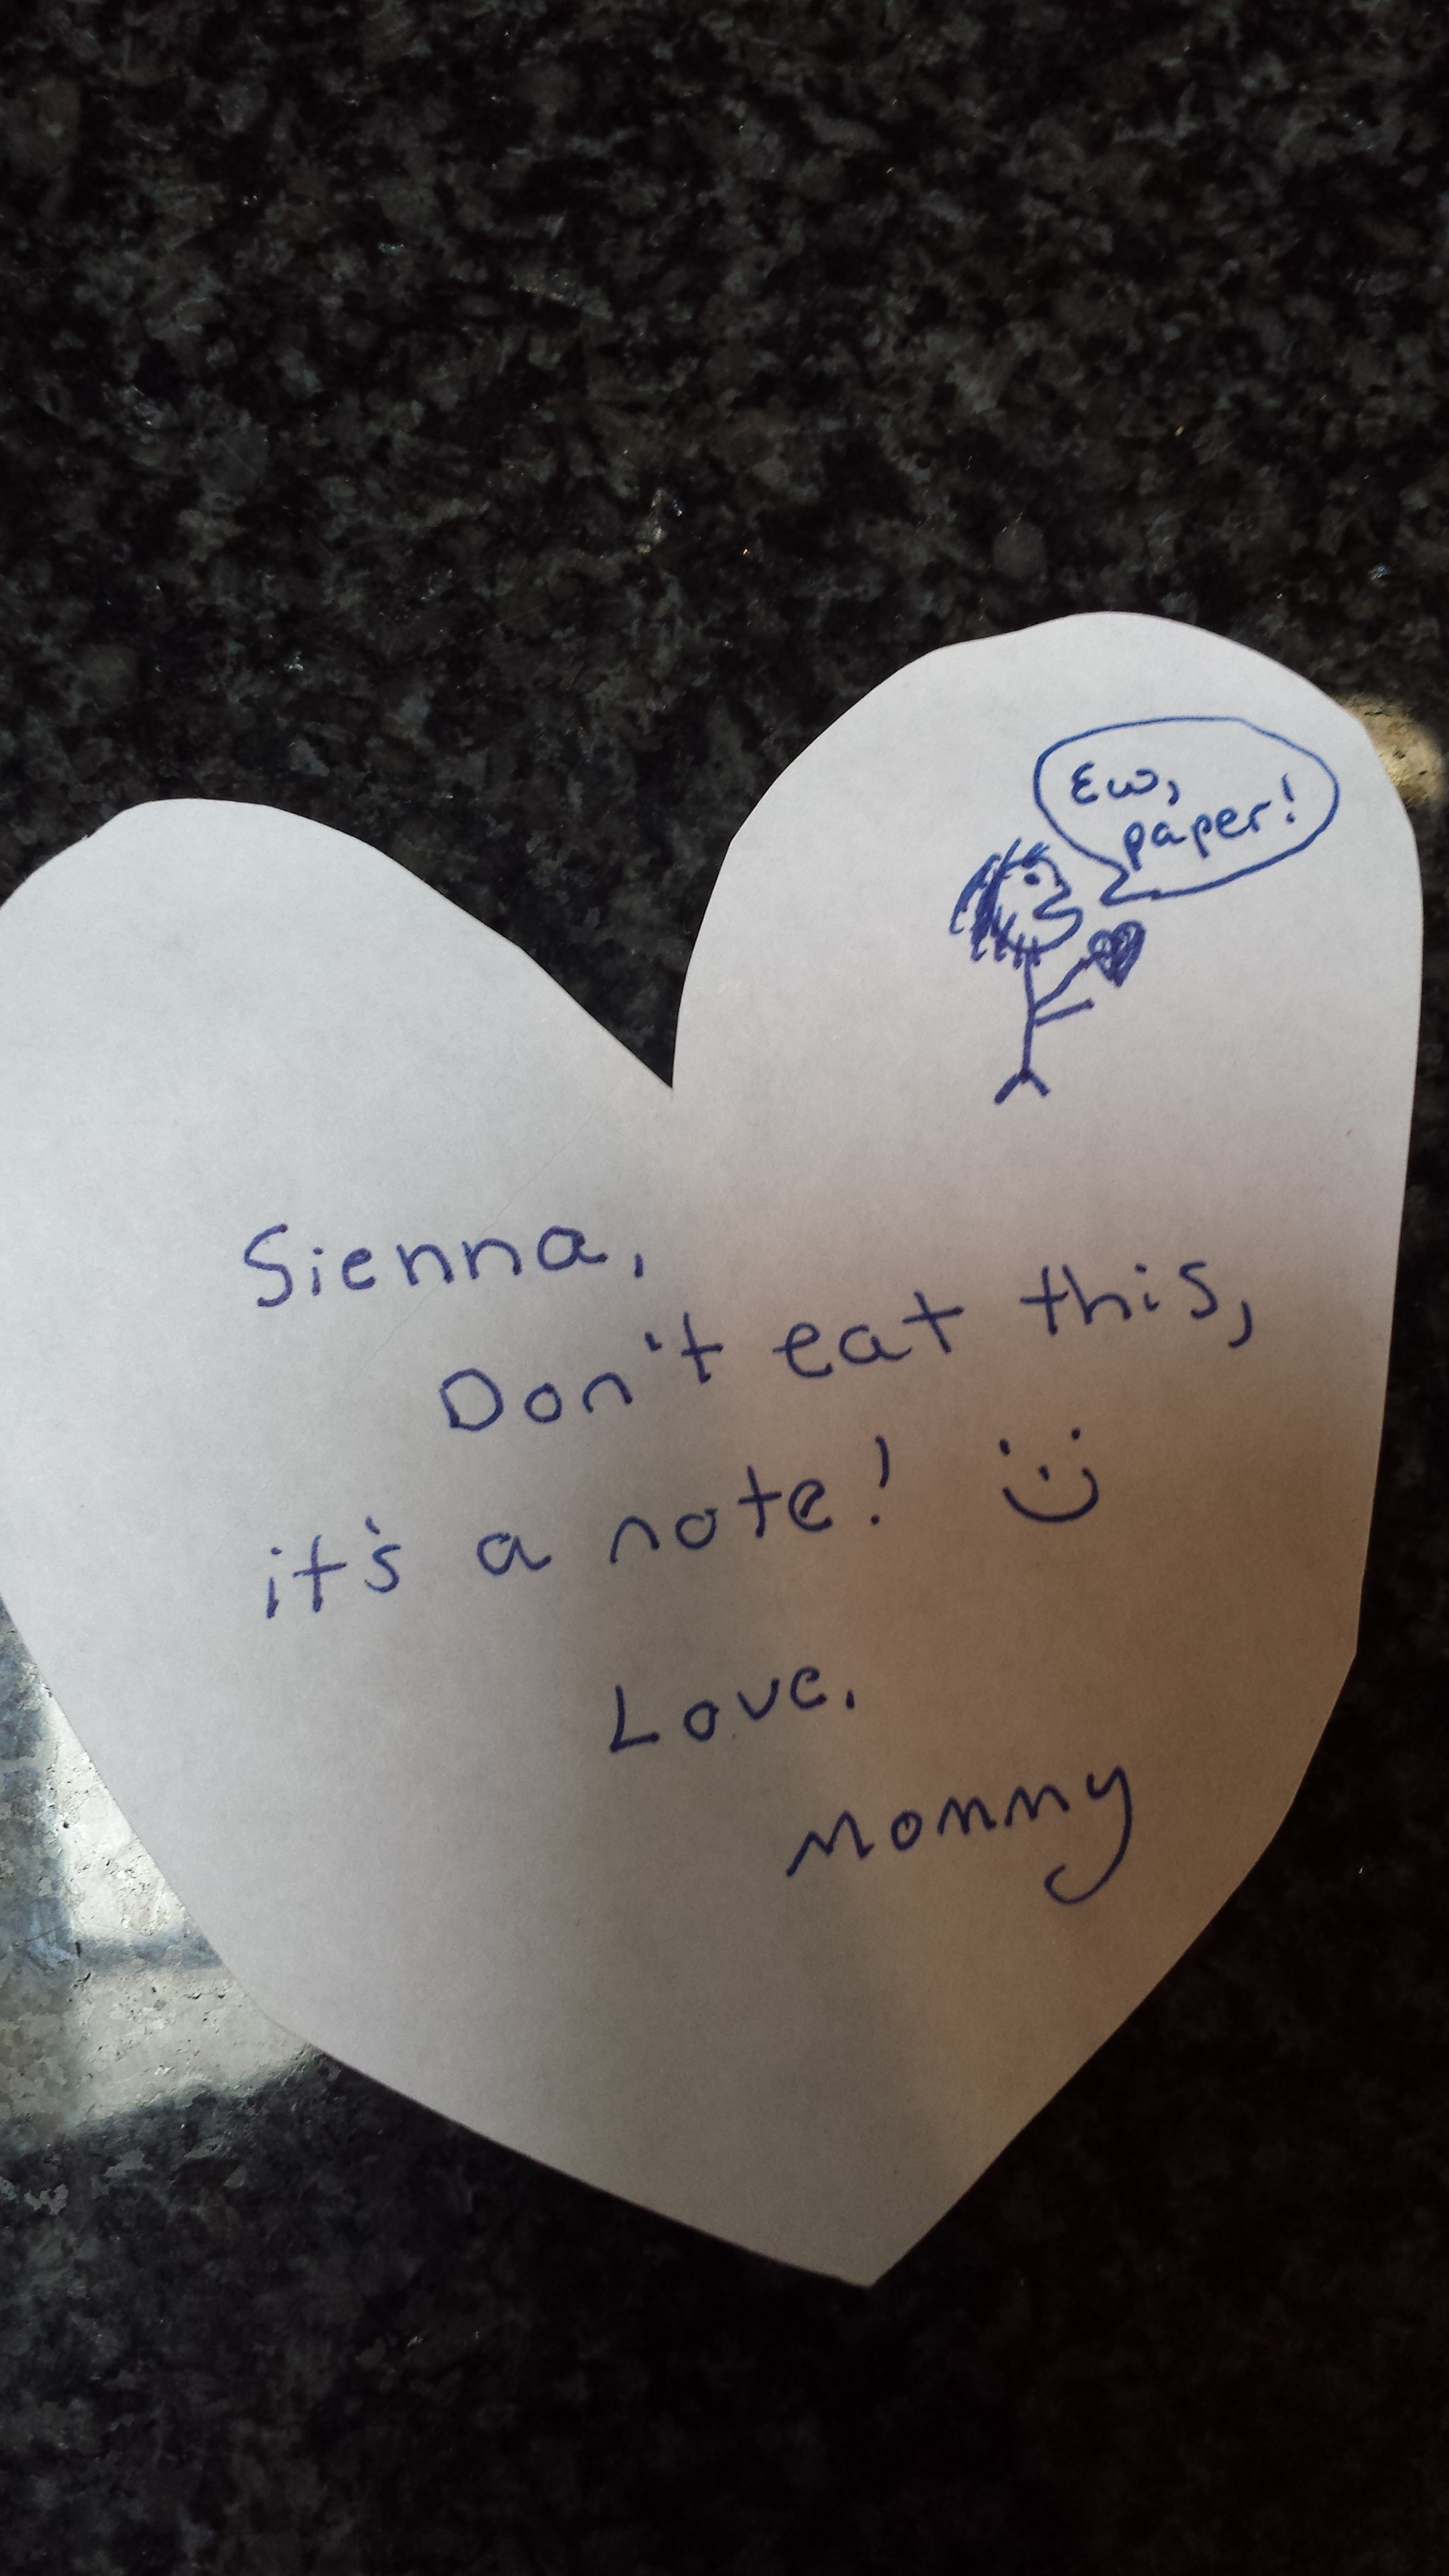 Ew,
paper!
Sienna,
Don't eat this,
it's a note! :)
Love,
Mommy